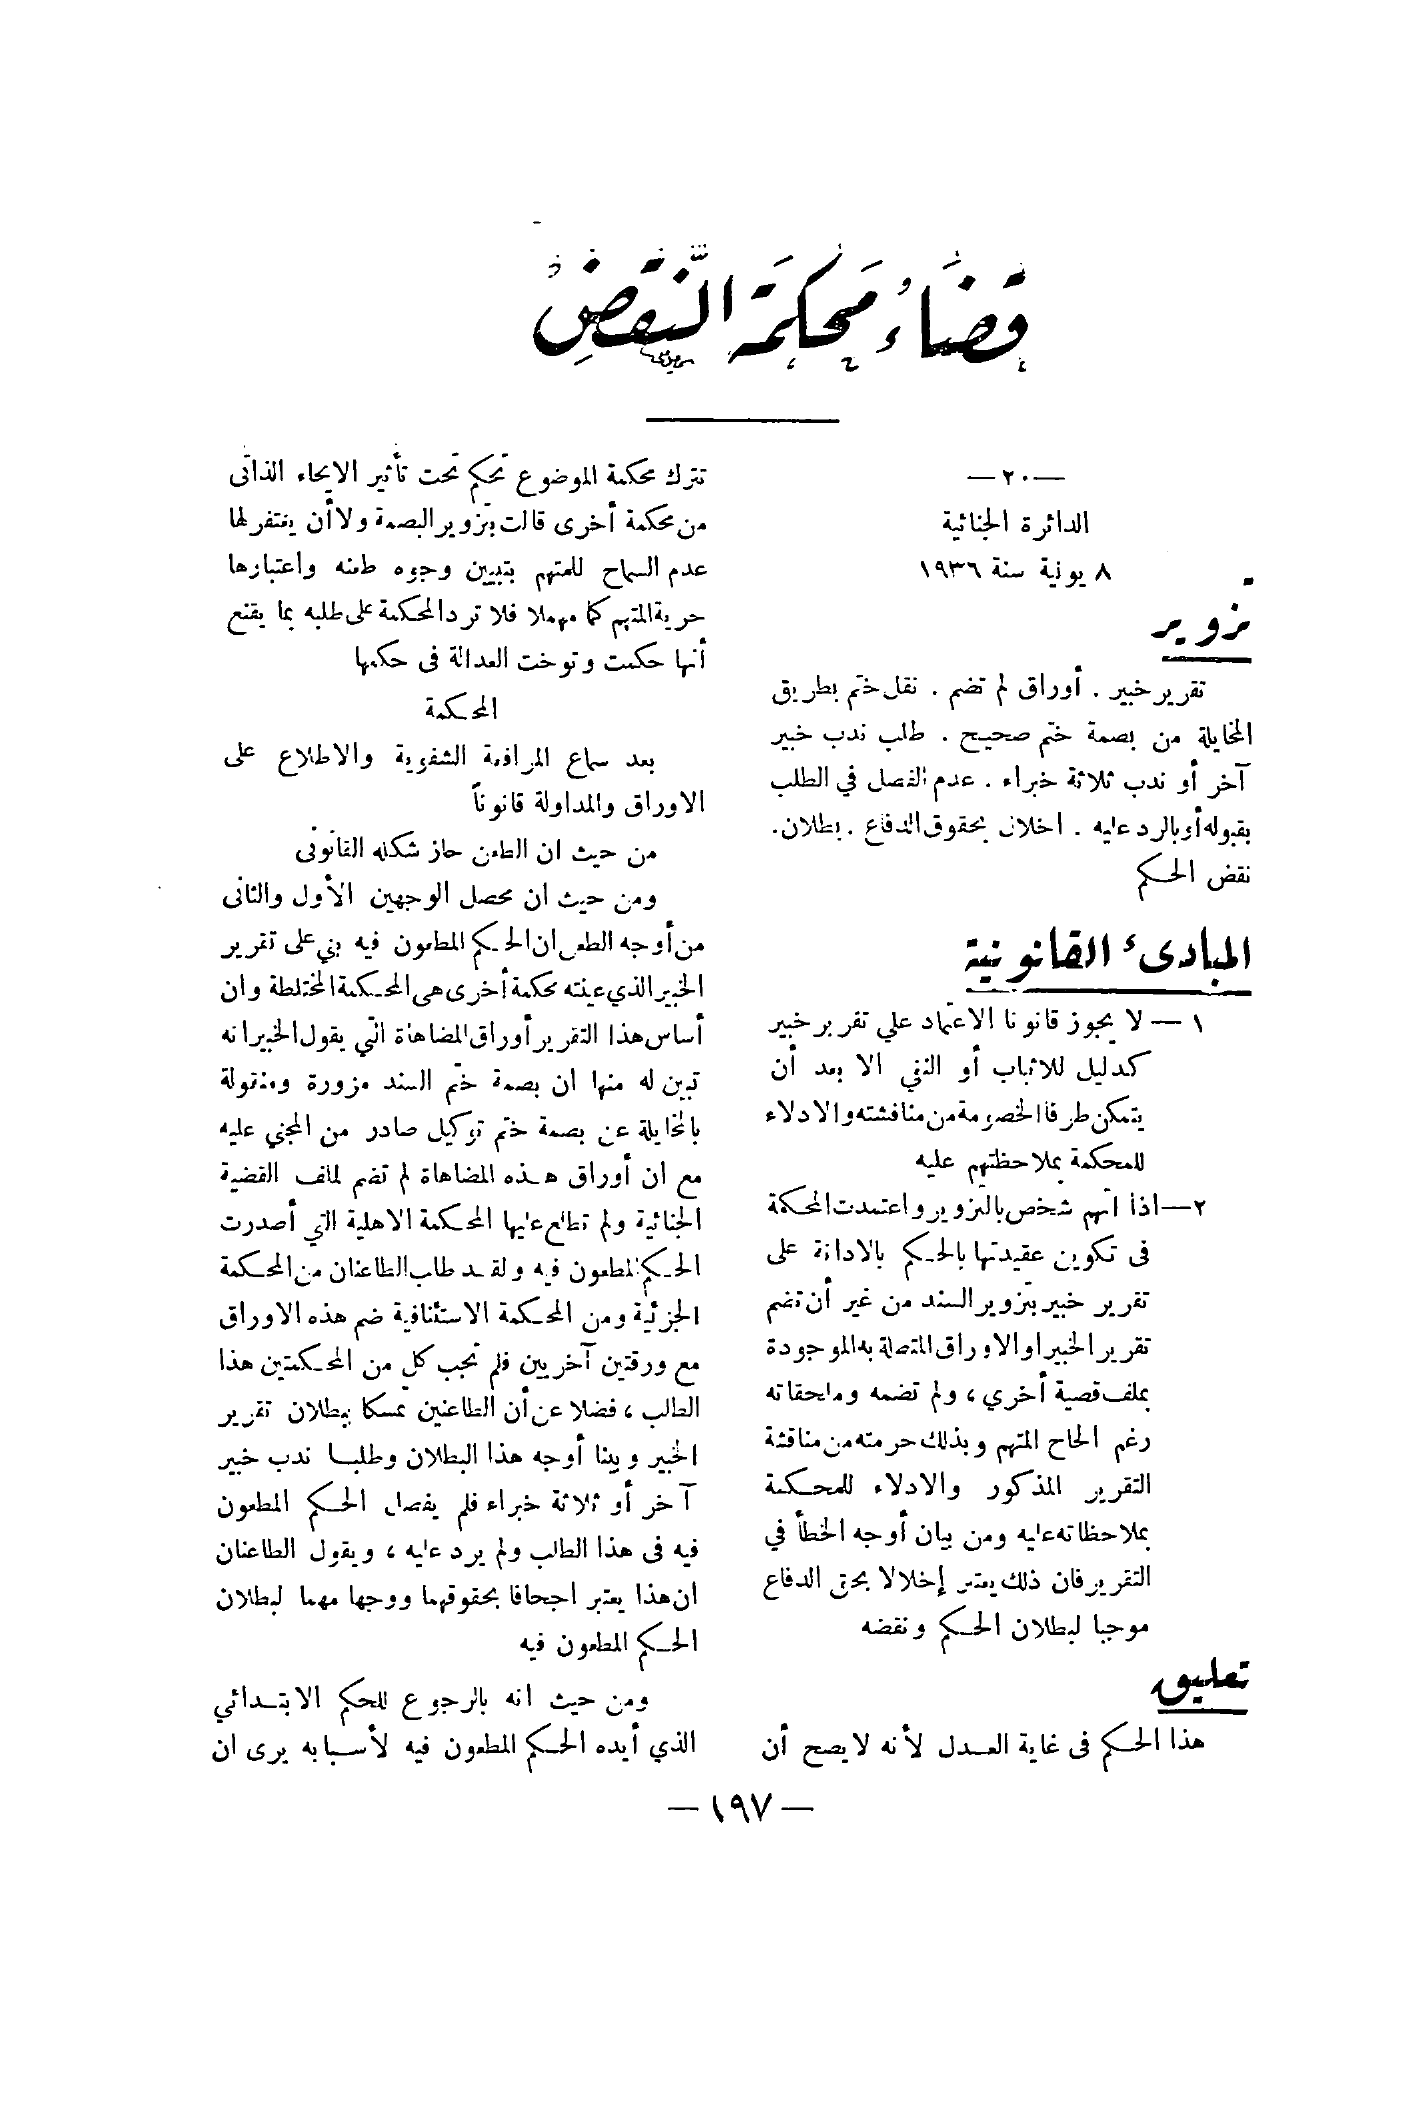 قضاء محكمة النقض
— ٢٠ —
الدائرة الجنائية
٨ يونية سنة ١٩٣٦
تزوير
تقرير خبير . أوراق لم تضم . نقل ختم بطريق
المخايلة من بصمة ختم صحيح . طلب ندب خبير
آخر أو ندب ثلاثة خبراء . عدم الفصل في الطلب
بقبوله أو بالرد عليه . اخلال بحقوق الدفاع . بطلان .
نقض الحكم
المبادىء القانونية
١ — لا يجوز قانونا الاعتماد علي تقرير خبير
كدليل للاثباب أو النفي الا بعد أن
يتمكن طرفا الخصومة من مناقشته والادلاء
للمحكمة بملاحظتهم عليه
٢ — اذا اتهم شخص بالتزوير واعتمدت المحكمة
فى تكوين عقيدتها بالحكم بالادانة على
تقرير خبير بتزوير السند من غير أن تضم
تقرير الخبير او الاوراق المتصلة به الموجودة
بملف قصية أخري ، ولم تضمه وملحقاته
رغم الحاح المتهم وبذلك حرمته من مناقشة
التقرير المذكور والادلاء للمحكمة
بملاحظاته عليه ومن بيان أوجه الخطأ في
التقرير فان ذلك يعتبر إخلالا بحق الدفاع
موجبا لبطلان الحكم ونقضه
تعليق
هذا الحكم فى غاية العدل لأنه لا يصح أن
تترك محكمة الموضوع تحكم تحت تأثير الايحاء الذاتى
من محكمة أخرى قالت بتزوير البصمة ولا أن يغتفر لها
عدم السماح للمتهم بتبيين وجوه طعنه واعتبارها
حرية المتهم كما مهملا فلا ترد المحكمة على طلبه بما يقنع
أنها حكمت وتوخت العدالة فى حكمها
المحكمة
بعد سماع المرافعة الشفوية والاطلاع على
الاوراق والمداولة قانوناً
من حيث ان الطعن حاز شكله القانونى
ومن حيث ان محصل الوجهين الأول والثانى
من أوجه الطعن ان الحكم المطعون فيه بني على تقرير
الخبير الذي عينته محكمة أخرى هى المحكمة المختلطة وان
أساس هذا التقرير أوراق المضاهاة التي يقول الخبير انه
تبين له منها ان بصمة ختم السند مزورة ومنقولة
بالمخايلة عن بصمة ختم توكيل صادر من المجني عليه
مع ان أوراق هذه المضاهاة لم تضم لملف القضية
الجنائية ولم تطلع عليها المحكمة الاهلية التي أصدرت
الحكم المطعون فيه ولقد طلب الطاعنان من المحكمة
الجزئية ومن المحكمة الاستئنافية ضم هذه الاوراق
مع ورقتين آخريين فلم تجب كل من المحكمتين هذا
الطلب ، فضلا عن أن الطاعنين تمسكا ببطلان تقرير
الخبير وبينا أوجه هذا البطلان وطلبا ندب خبير
آخر أو ثلاثة خبراء فلم يفصل الحكم المطعون
فيه فى هذا الطلب ولم يرد عليه ، ويقول الطاعنان
ان هذا يعتبر اجحافا بحقوقهما ووجها مهما لبطلان
الحكم المطعون فيه
ومن حيث انه بالرجوع للحكم الابتدائي
الذي أيده الحكم المطعون فيه لأسبابه يرى ان
— ١٩٧ —